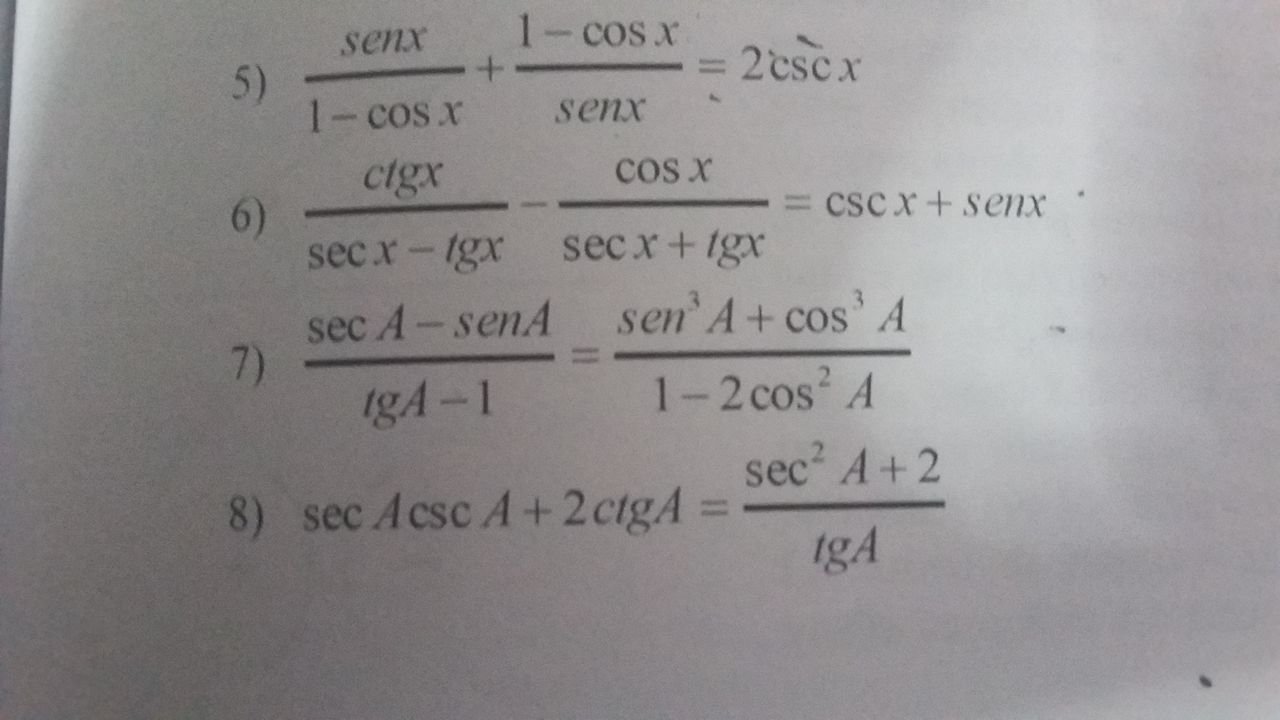 5) senx / 1 − cos x + 1 − cos x / senx = 2 csc x
6) ctgx / sec x − tgx − cos x / sec x + tgx = csc x + senx
7) sec A − senA / tgA − 1 = sen³ A + cos³ A / 1 − 2 cos² A
8) sec A csc A + 2 ctgA = sec² A + 2 / tgA